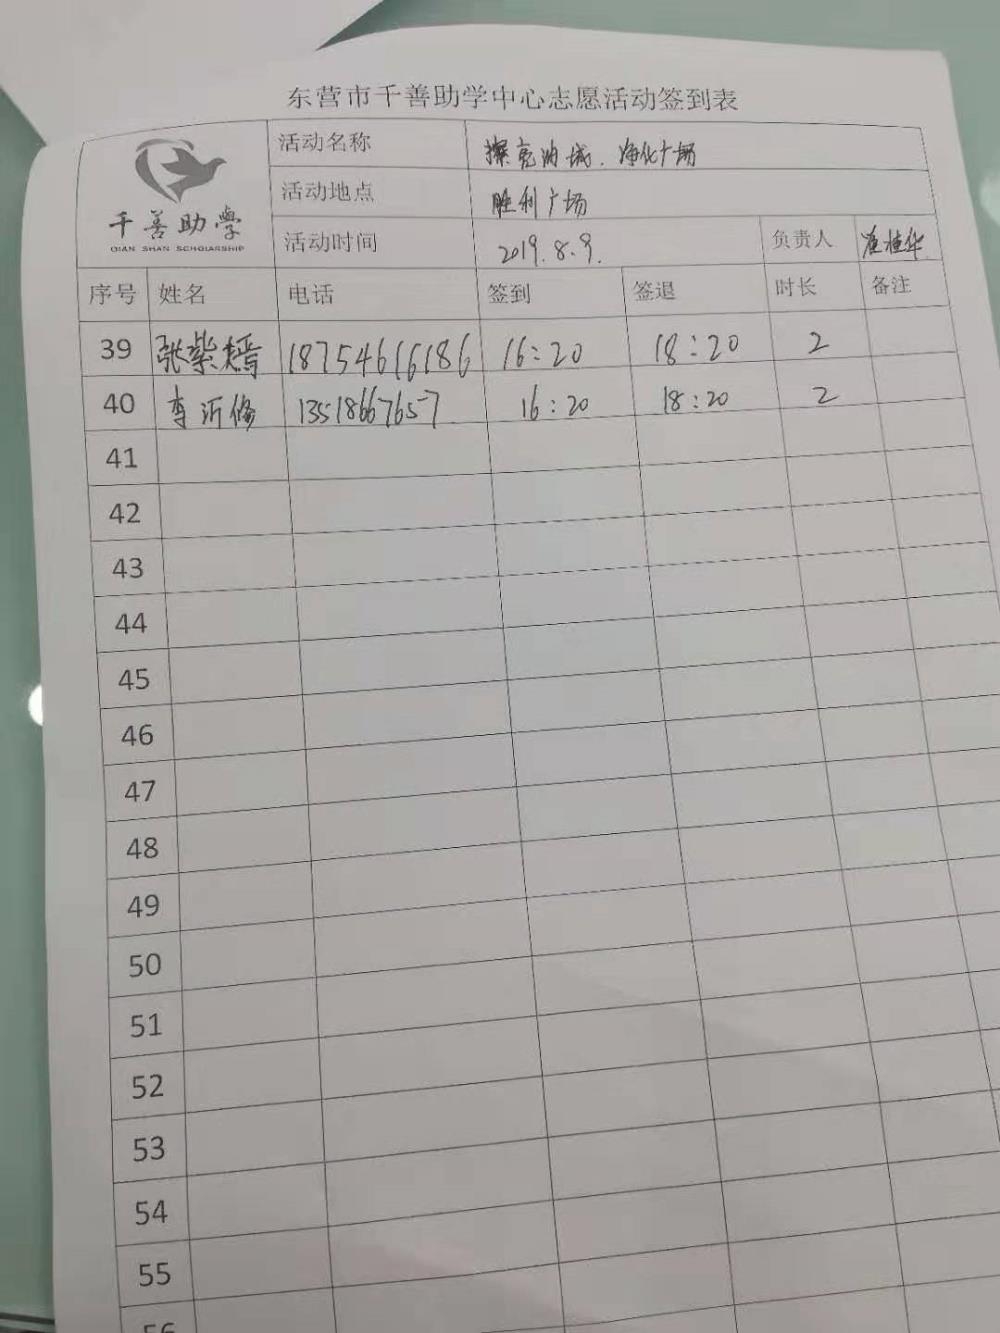 东营市千善助学中心志愿活动签到表
千善助学
QIAN SHAN SCHOLARSHIP
活动名称 擦亮油城、净化广场
活动地点 胜利广场
活动时间 2019.8.9. 负责人 崔桂华
序号 姓名 电话 签到 签退 时长 备注
39 张紫嫣 18754616186 16:20 18:20 2
40 李沂修 13518667657 16:20 18:20 2
41
42
43
44
45
46
47
48
49
50
51
52
53
54
55
56